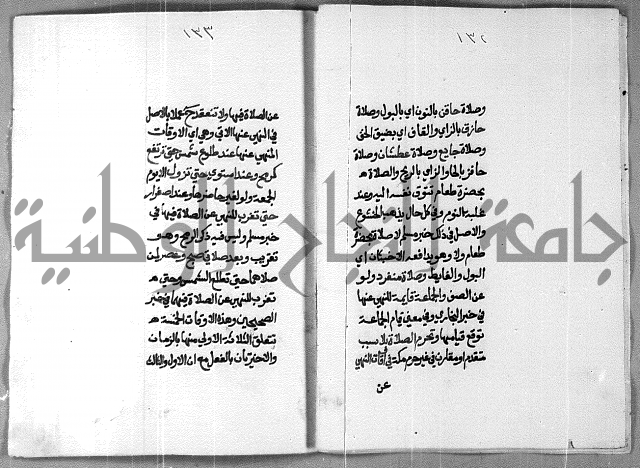 ١٣٢
وصلاة حاقن بالنون اي بالبول وصلاة
حازق بالزاي والقاف اي بضيق الخف
وصلاة جايع وصلاة عطشان وصلاة
حافز بالحا والزاي بالريح والصلاة
بحضرة طعام تتوق نفسه اليه وعند
غلبة النوم وفي كل حال يذهب الخشوع
والاصل في ذلك خبر مسلم لا صلاة بحضرة
طعام ولا وهو يدافعه الاخبثان اي
البول والغايط وصلاة منفرد ولو
عن الصف والجماعة قايمة للنهي عنها
في خبر البخاري وفي معنى قيام الجماعة
توقع قيامها وتحرم الصلاة بلا سبب
متقدم او مقارن في غير حرم مكة في اوقات النهي
عن
١٣٣
عن الصلاة فيها ولا تنعقد عملا بالاصل
في النهي عنها الاتي وهي اي الاوقات
المنهي عنها عند طلوع شمس حتى ترتفع
كرمح وعند استوي حتى تزول الا يوم
الجمعة ولو لغير حاضرها وعند اصفرار
حتى تغرب للنهي عن الصلاة فيها في
خبر مسلم وليس فيه ذكر الرمح وهو
تقريب وبعد صلاة صبح وعصر لمن
صلاهما حتى تطلع الشمس وحتى
تغرب للنهي عن الصلاة فيها في خبر
الصحيحين وهذه الاوقات الخمسة
تتعلق الثلاثة الاولى منها بالزمان
والاخيرتان بالفعل مع ان الاول والثالث
جامعة النجاح الوطنية